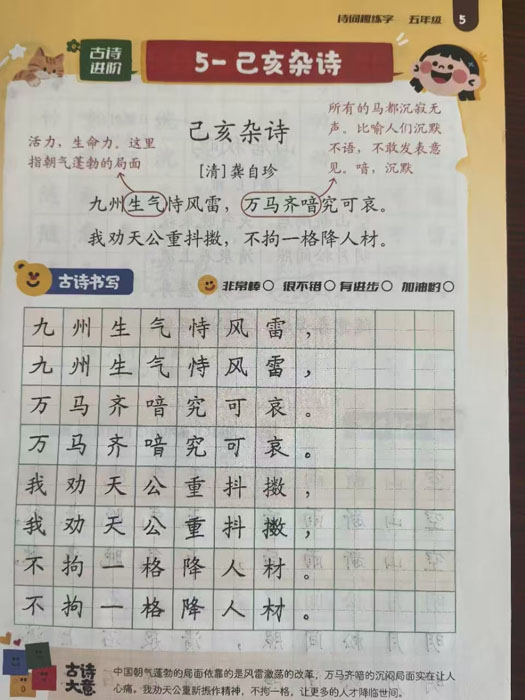 诗词趣练字 五年级 5
古诗进阶
5-己亥杂诗
己亥杂诗
[清]龚自珍
活力，生命力。这里
指朝气蓬勃的局面
所有的马都沉寂无
声。比喻人们沉默
不语，不敢发表意
见。喑，沉默
九州生气恃风雷，万马齐喑究可哀。
我劝天公重抖擞，不拘一格降人材。
古诗书写
非常棒 很不错 有进步 加油哟
九州生气恃风雷，
九州生气恃风雷，
万马齐喑究可哀。
万马齐喑究可哀。
我劝天公重抖擞，
我劝天公重抖擞，
不拘一格降人材。
不拘一格降人材。
古诗大意
中国朝气蓬勃的局面依靠的是风雷激荡的改革，万马齐喑的沉闷局面实在让人
心痛。我劝天公重新振作精神，不拘一格，让更多的人才降临世间。